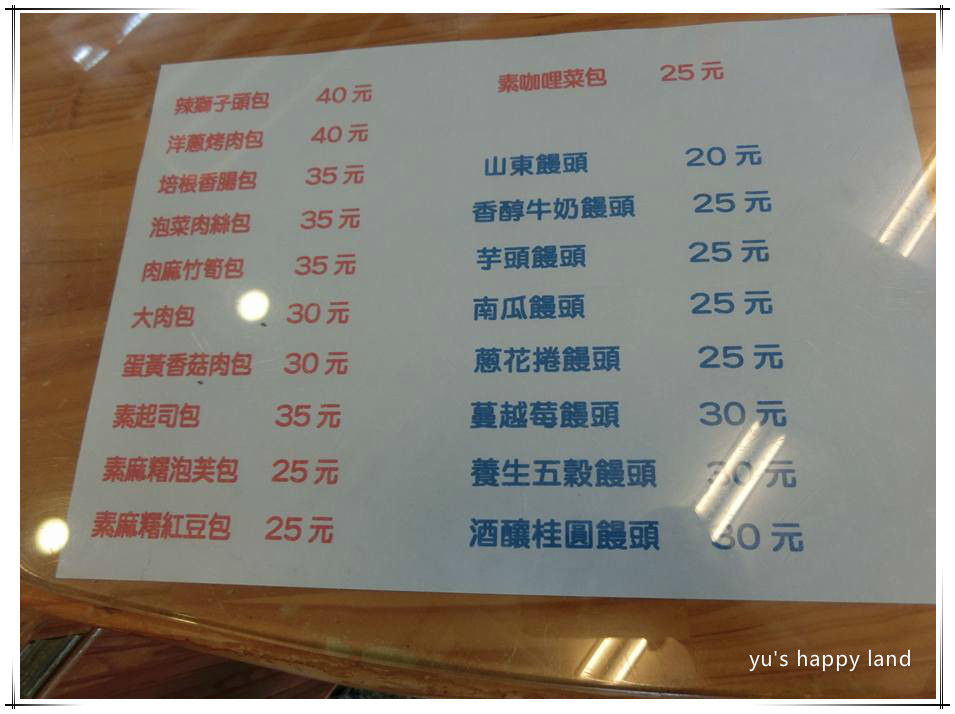 辣獅子頭包 40元
洋蔥烤肉包 40元
培根香腸包 35元
泡菜肉絲包 35元
肉麻竹筍包 35元
大肉包 30元
蛋黃香菇肉包 30元
素起司包 35元
素麻糬泡芙包 25元
素麻糬紅豆包 25元
素咖哩菜包 25元
山東饅頭 20元
香醇牛奶饅頭 25元
芋頭饅頭 25元
南瓜饅頭 25元
蔥花捲饅頭 25元
蔓越莓饅頭 30元
養生五穀饅頭 30元
酒釀桂圓饅頭 30元
yu's happy land